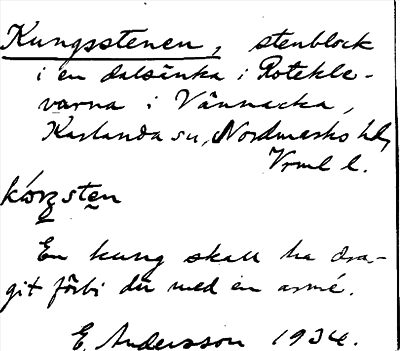 Kungsstenen, stenblock
i en dalsänka i Rotekle-
varna i Vännacka,
Karlanda sn, Nordmarks hd,
Vrml l.
En kung skall ha dra-
git förbi där med en armé.
E. Andersson 1934.